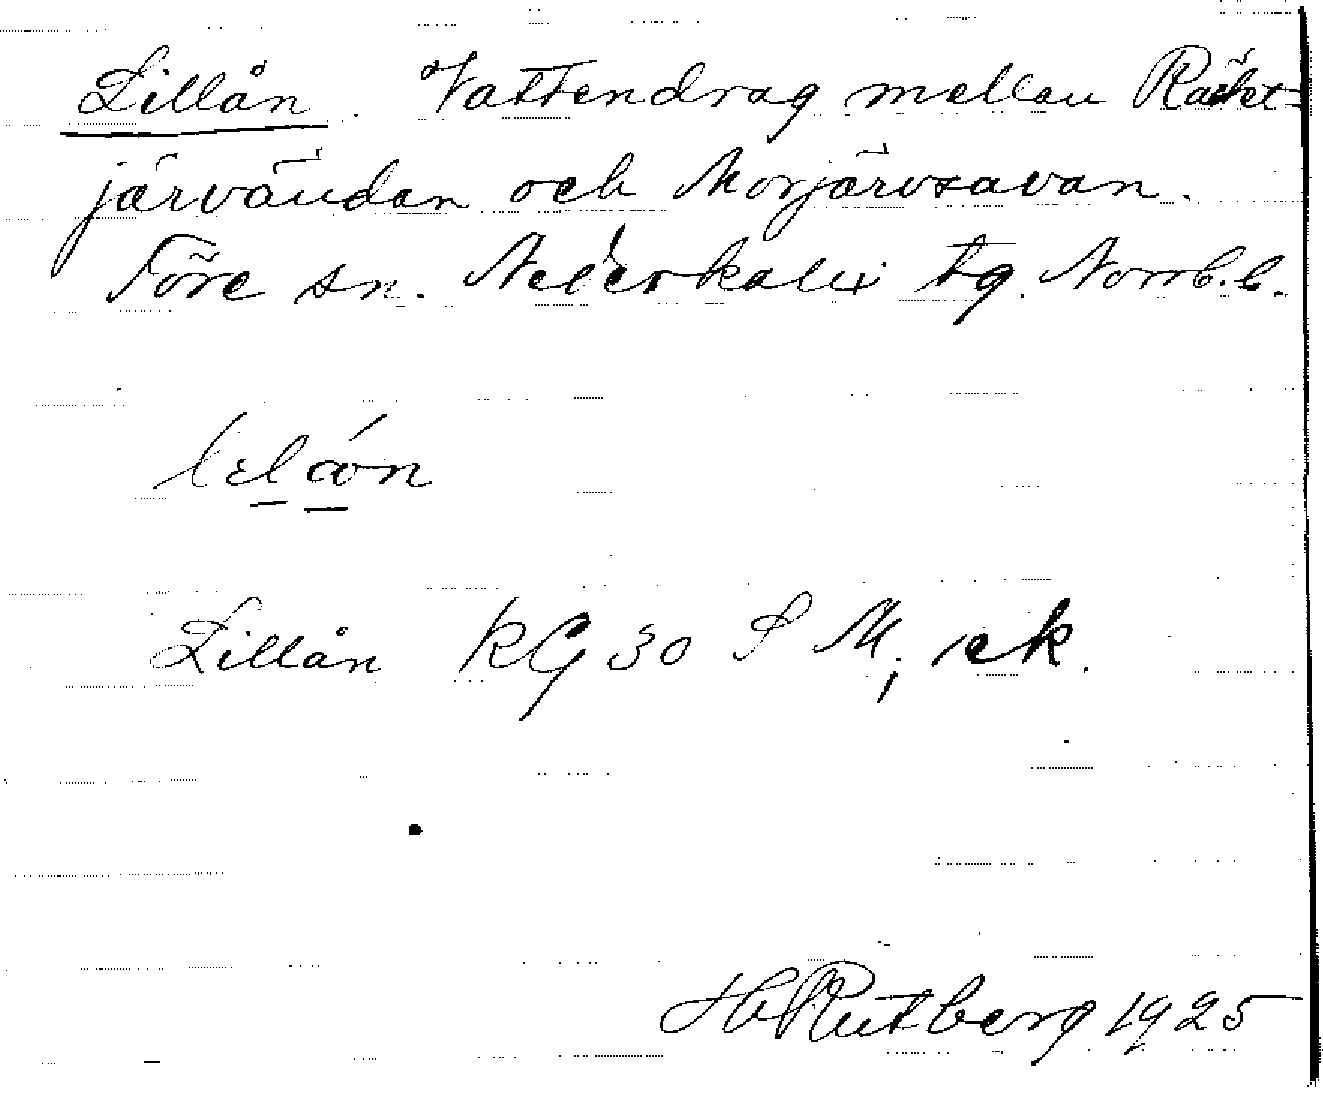 Lillån. Vattendrag mellan Räkt-
järvändan och Morjärvsavan.
Töre sn. Nederkalix tg. Norrb. l.
Lillån KG 30 S M, ek.
H Rutberg 1925